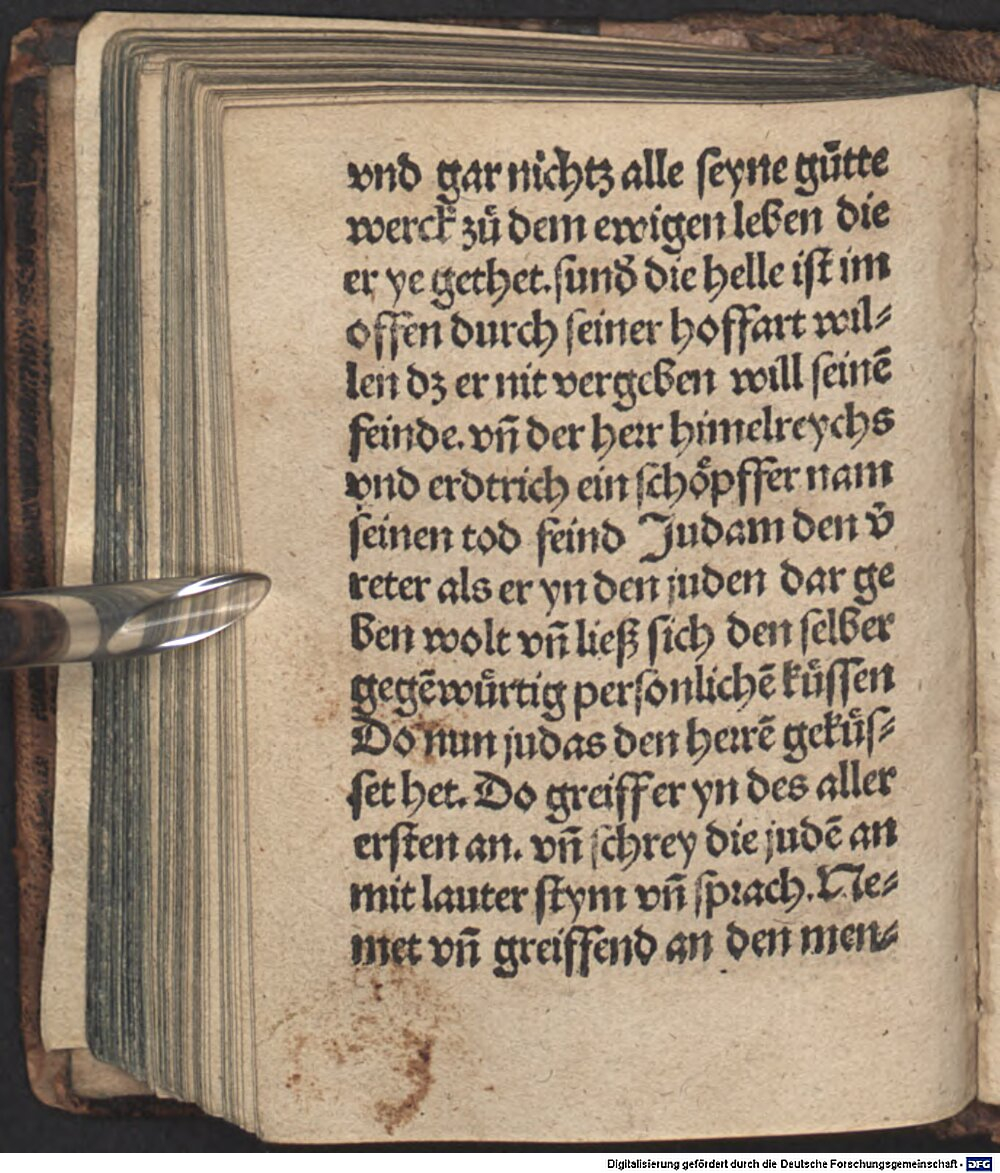 vnd gar nichtz alle seyne gůtte
werck zů dem ewigen leben die
er ye gethet. sunď die helle ist im
offen durch seiner hoffart wil⸗
len dz er nit vergeben will seinē
feinde. vn̄ der herr himelreychs
vnd erdtrich ein schoͤpffer nam
seinen tod feind Judam den v̄
reter als er yn den juden dar ge
ben wolt vn̄ ließ sich den selber
gegēwuͤrtig personlichē kuͤssen
Do nun judas den herrē gekuͤs⸗
set het. Do greiff er yn des aller
ersten an. vn̄ schrey die judē an
mit lauter stym vn̄ sprach. Ne⸗
met vn̄ greiffend an den men⸗
Digitalisierung gefördert durch die Deutsche Forschungsgemeinschaft - DFG